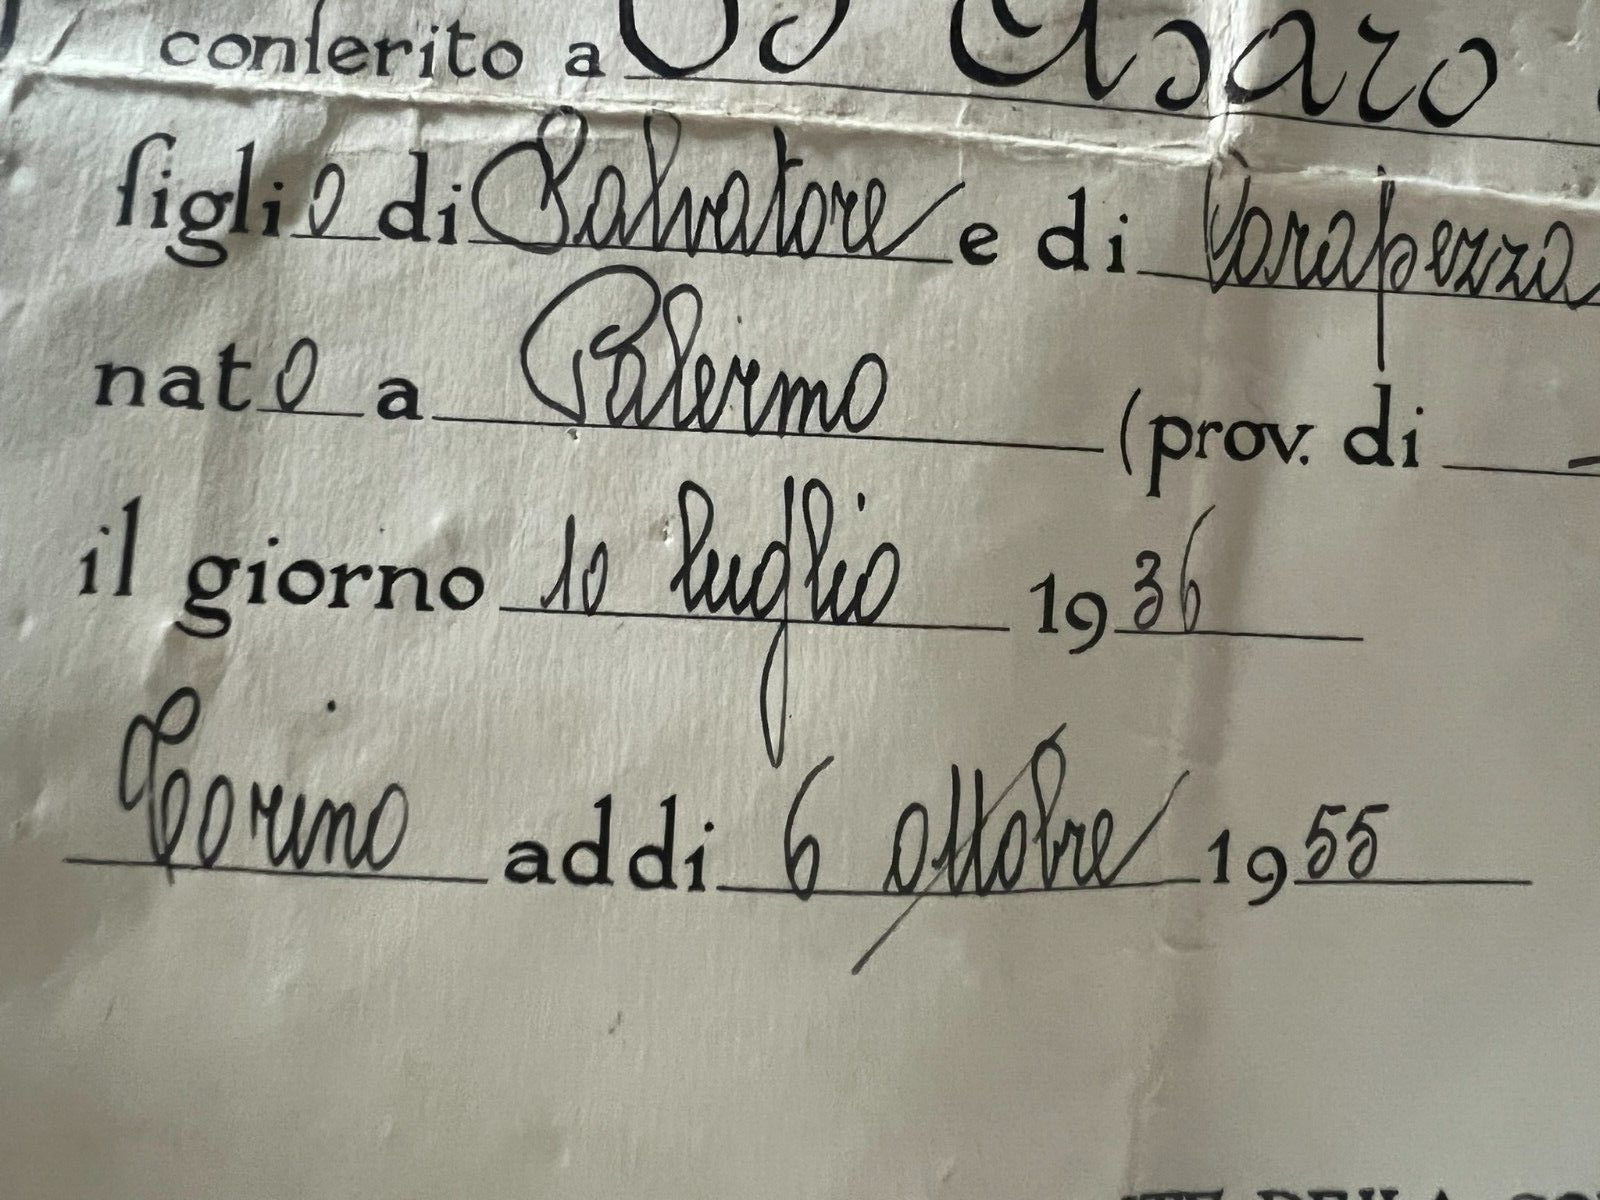 conferito a Asaro
figlio di Salvatore e di Carapezza
nato a Palermo (prov. di —
il giorno 10 luglio 1936
Torino addi 6 ottobre 1955